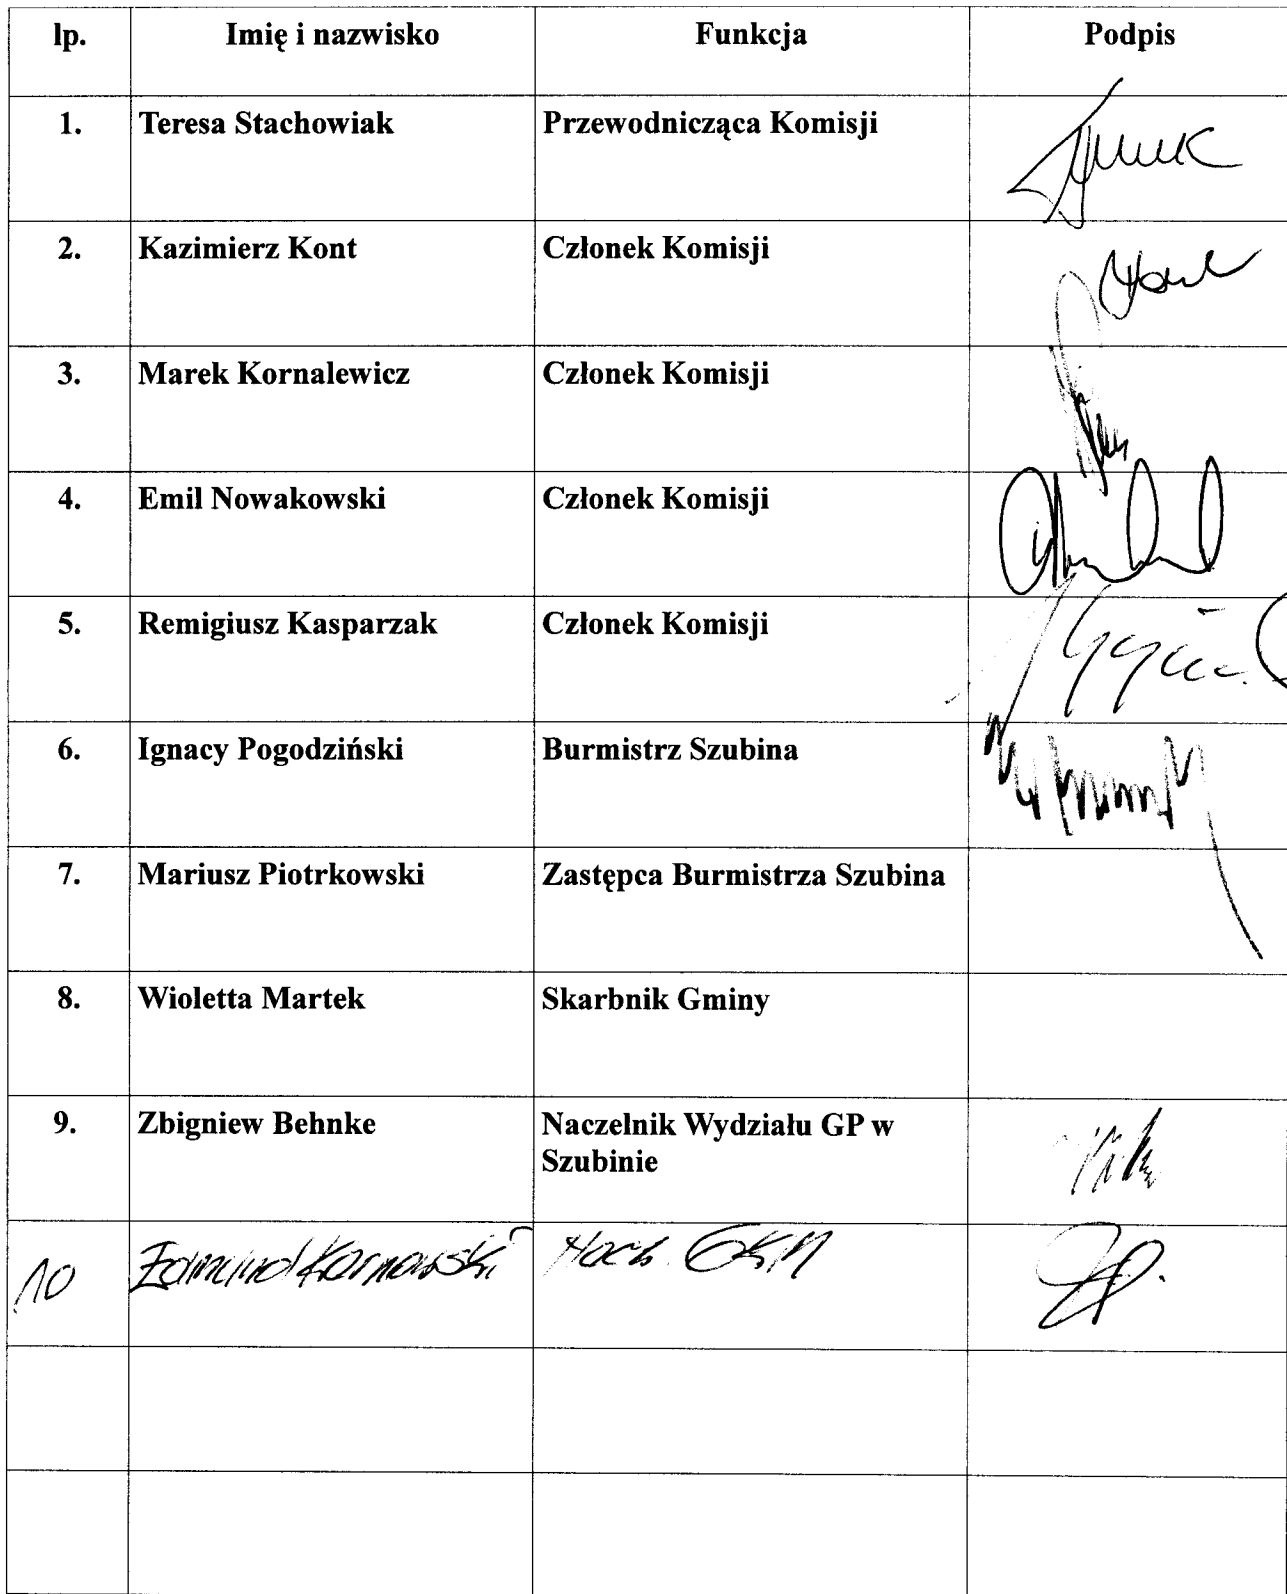 lp. Imię i nazwisko Funkcja Podpis
1. Teresa Stachowiak Przewodnicząca Komisji
2. Kazimierz Kont Członek Komisji
3. Marek Kornalewicz Członek Komisji
4. Emil Nowakowski Członek Komisji
5. Remigiusz Kasparzak Członek Komisji
6. Ignacy Pogodziński Burmistrz Szubina
7. Mariusz Piotrkowski Zastępca Burmistrza Szubina
8. Wioletta Martek Skarbnik Gminy
9. Zbigniew Behnke Naczelnik Wydziału GP w
Szubinie
10 Edmund